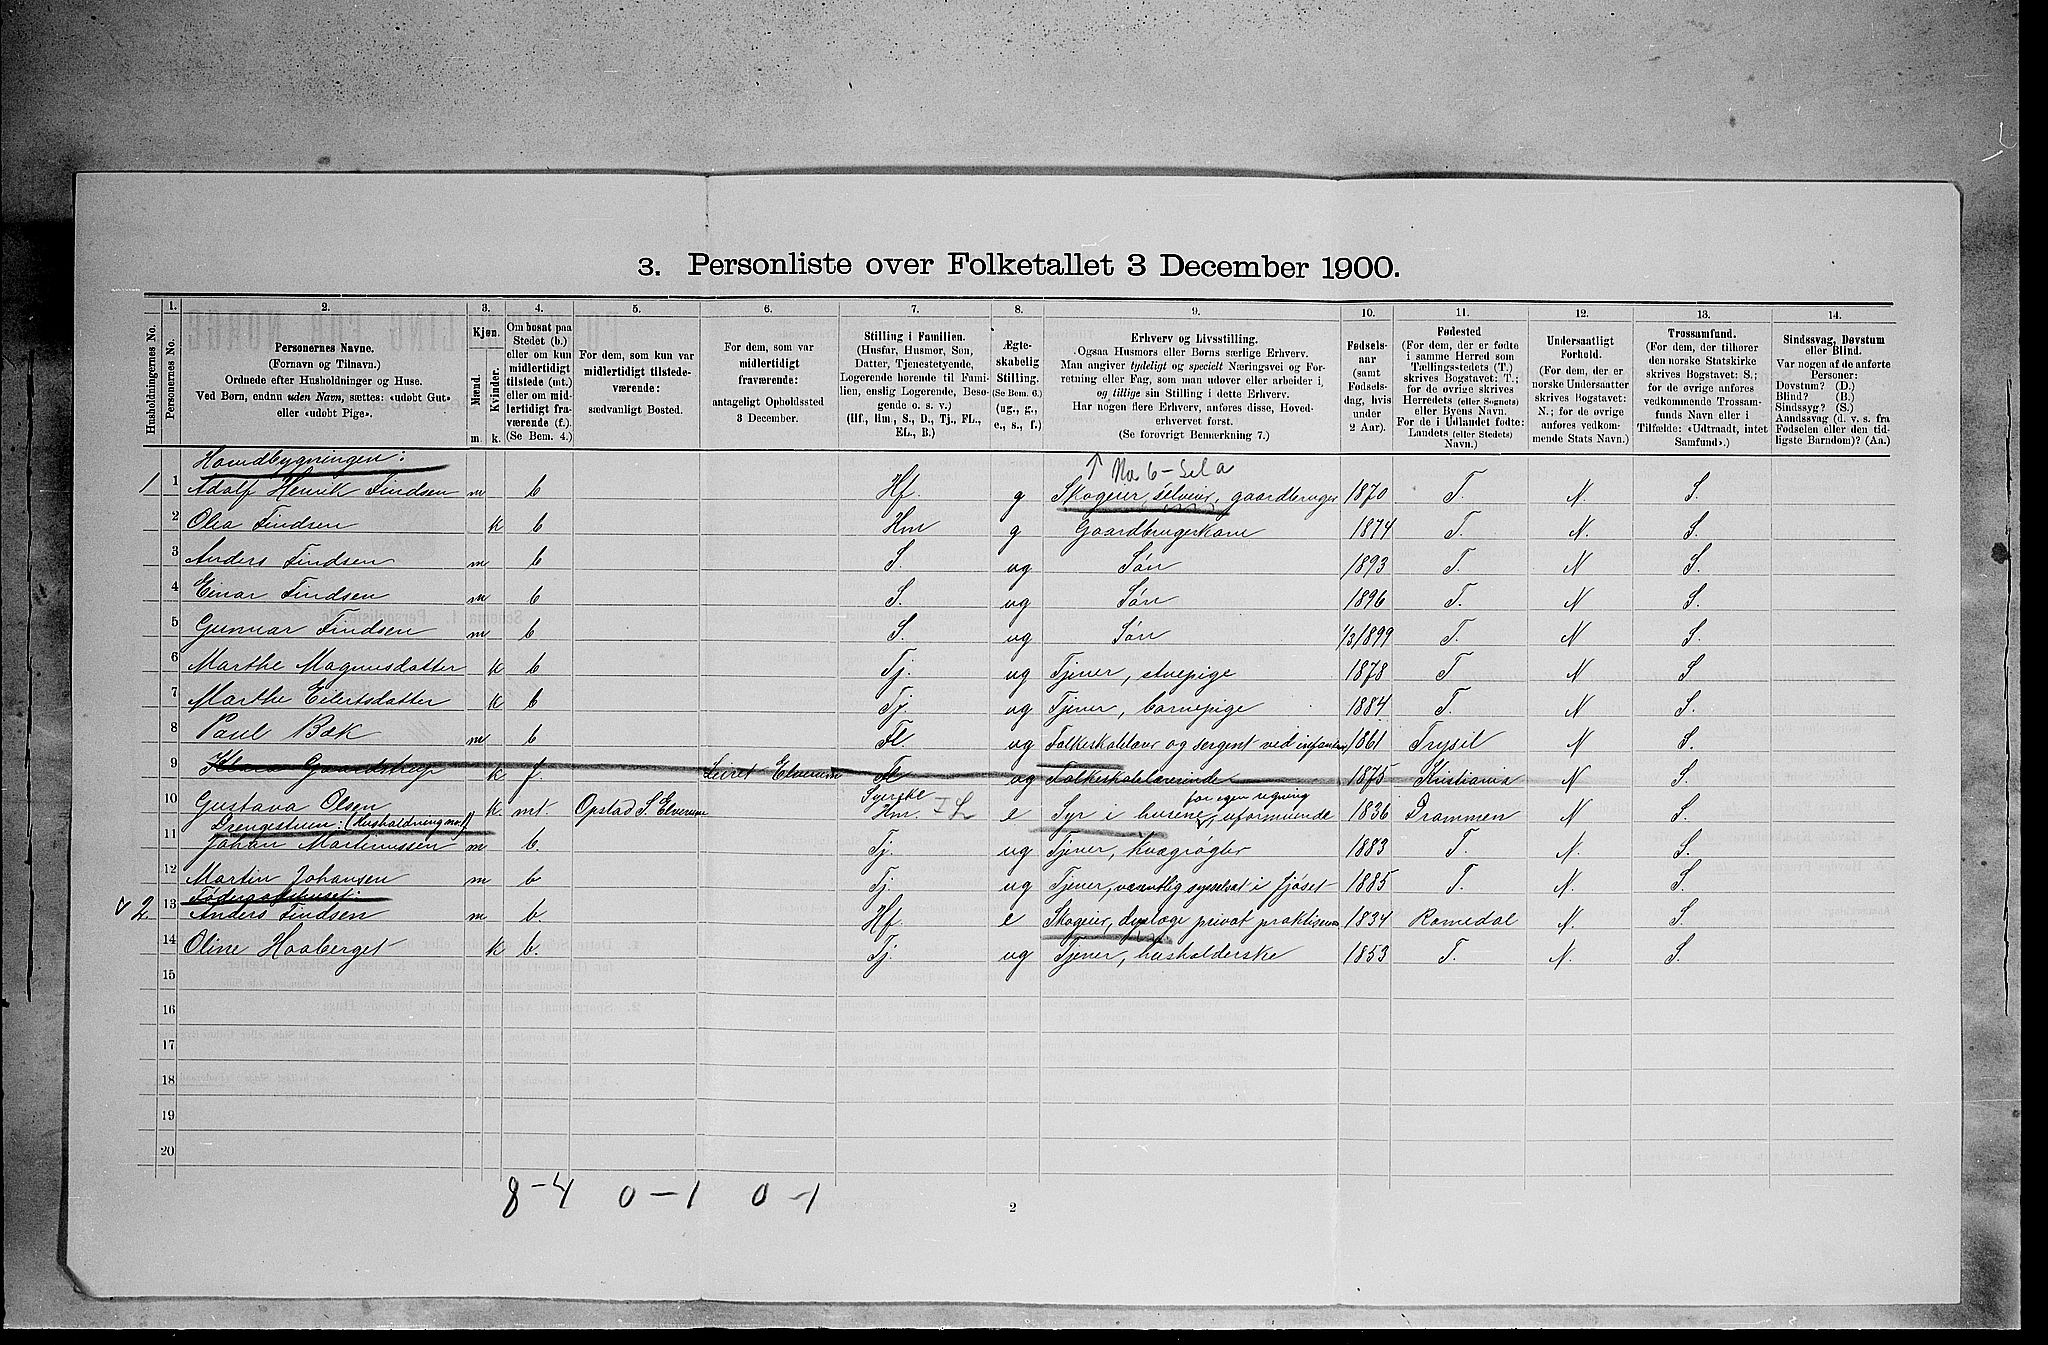 3. Personliste over Folketallet 3 December 1900.
1. 2. 3. 4. 5. 6. 7. 8. 9. 10. 11. 12. 13. 14.
Husholdningernes No.
Personernes No.
Personernes Navne.
(Fornavn og Tilnavn.)
Ordnede efter Husholdninger og Huse.
Ved Børn, endnu uden Navn, sættes: «udøbt Gut»
eller «udøbt Pige».
Kjøn.
Mænd. Kvinder.
m. k.
Om bosat paa
Stedet (b.)
eller om kun
midlertidigt
tilstede (mt.)
eller om mid-
lertidigt fra-
værende (f.).
(Se Bem. 4.)
For dem, som kun var
midlertidigt tilstede-
værende:
sædvanligt Bosted.
For dem, som var
midlertidigt
fraværende:
antageligt Opholdssted
3 December.
Stilling i Familien.
(Husfar, Husmor, Søn,
Datter, Tjenestetyende,
Logerende hørende til Fami-
lien, enslig Logerende, Besø-
gende o. s. v.)
(Hf., Hm., S., D., Tj., FL.,
EL., B.)
Ægte-
skabelig
Stilling.
(Se Bem. 6.)
(ug., g.,
e., s., f.)
Erhverv og Livsstilling.
Ogsaa Husmors eller Børns særlige Erhverv.
Man angiver tydeligt og specielt Næringsvei og For-
retning eller Fag, som man udover eller arbeider i,
og tillige sin Stilling i dette Erhverv.
Har nogen flere Erhverv, anføres disse, Hoved-
erhvervet først.
(Se forøvrigt Bemærkning 7.)
Fødsels-
aar
(samt
Fødsels-
dag, hvis
under
2 Aar).
Fødested
(For dem, der er fødte
i samme Herred som
Tællings-stedets (T.)
skrives Bogstavet: T.;
for de øvrige skrives
Herredets (eller Sognets)
eller Byens Navn.
For de i Udlandet fødte:
Landets (eller Stedets)
Navn.)
Undersaatligt
Forhold.
(For dem, der er
norske Undersaatter
skrives Bogstavet:
N.; for de øvrige
anføres vedkom-
mende Stats Navn.)
Trossamfund.
(For dem, der tilhører
den norske Statskirke
skrives Bogstavet: S.;
for de øvrige anføres
vedkommende Trossam-
funds Navn eller i
Tilfælde: «Udtraadt, intet
Samfund».)
Sindssvag, Døvstum
eller Blind.
Var nogen af de anførte
Personer:
Døvstum? (D.)
Blind? (B.)
Sindssyg? (S.)
Aandssvag (d. v. s. fra
Fødselen eller den tid-
ligste Barndom)? (Aa.)
Hovedbygningen:
1 1 Adolf Henrik Findsen m b Hf. g Skogeier, selveier, gaardbruger 1870 T. N. S.
2 Olea Findsen k b Hm g Gaardbrugerkone 1874 T. N. S.
3 Anders Findsen m b S. ug Søn 1893 T. N S.
4 Einar Findsen m b S. ug Søn 1896 T. N S.
5 Gunnar Findsen m b S. ug Søn 1/3 1899 T. N S.
6 Marthe Magnusdatter k b Tj. ug Tjener, stuepige 1878 T N S
7 Marthe Eilertsdatter k b Tj. ug Tjener, barnepige 1884 T. N S.
8 Paul Bæk m b Fl. ug Folkeskolelærer og sergent ved infanteri 1861 Trysil N S.
9 k f Leiret Elverum Fl ug Folkeskolelærerinde 1875 Kristiania N S.
10 Gustava Olsen k mt. Opstad S. Elverum Syerske Hm. e Syr i husene for egen regning, uformuende 1836 Drammen N S.
Drengestuen: (Husholdning no. 1)
11 Johan Martinussen m b. Tj. ug Tjener, kvægrøgter 1883 T. N. S.
12 Martin Johansen m b Tj. ug Tjener, væsentlig sysselsat i fjøset 1885 T. N. S.
Føderaadshuset:
2 13 Anders Findsen m b. Hf e Skogeier, dyrlæge privat praktiserende 1834 Romedal N. S.
14 Oline Haaberget k b. Tj. ug Tjener, husholderske 1853 T. N. S.
15
16
17
18
19
20
8-4 0-1 0-1
2